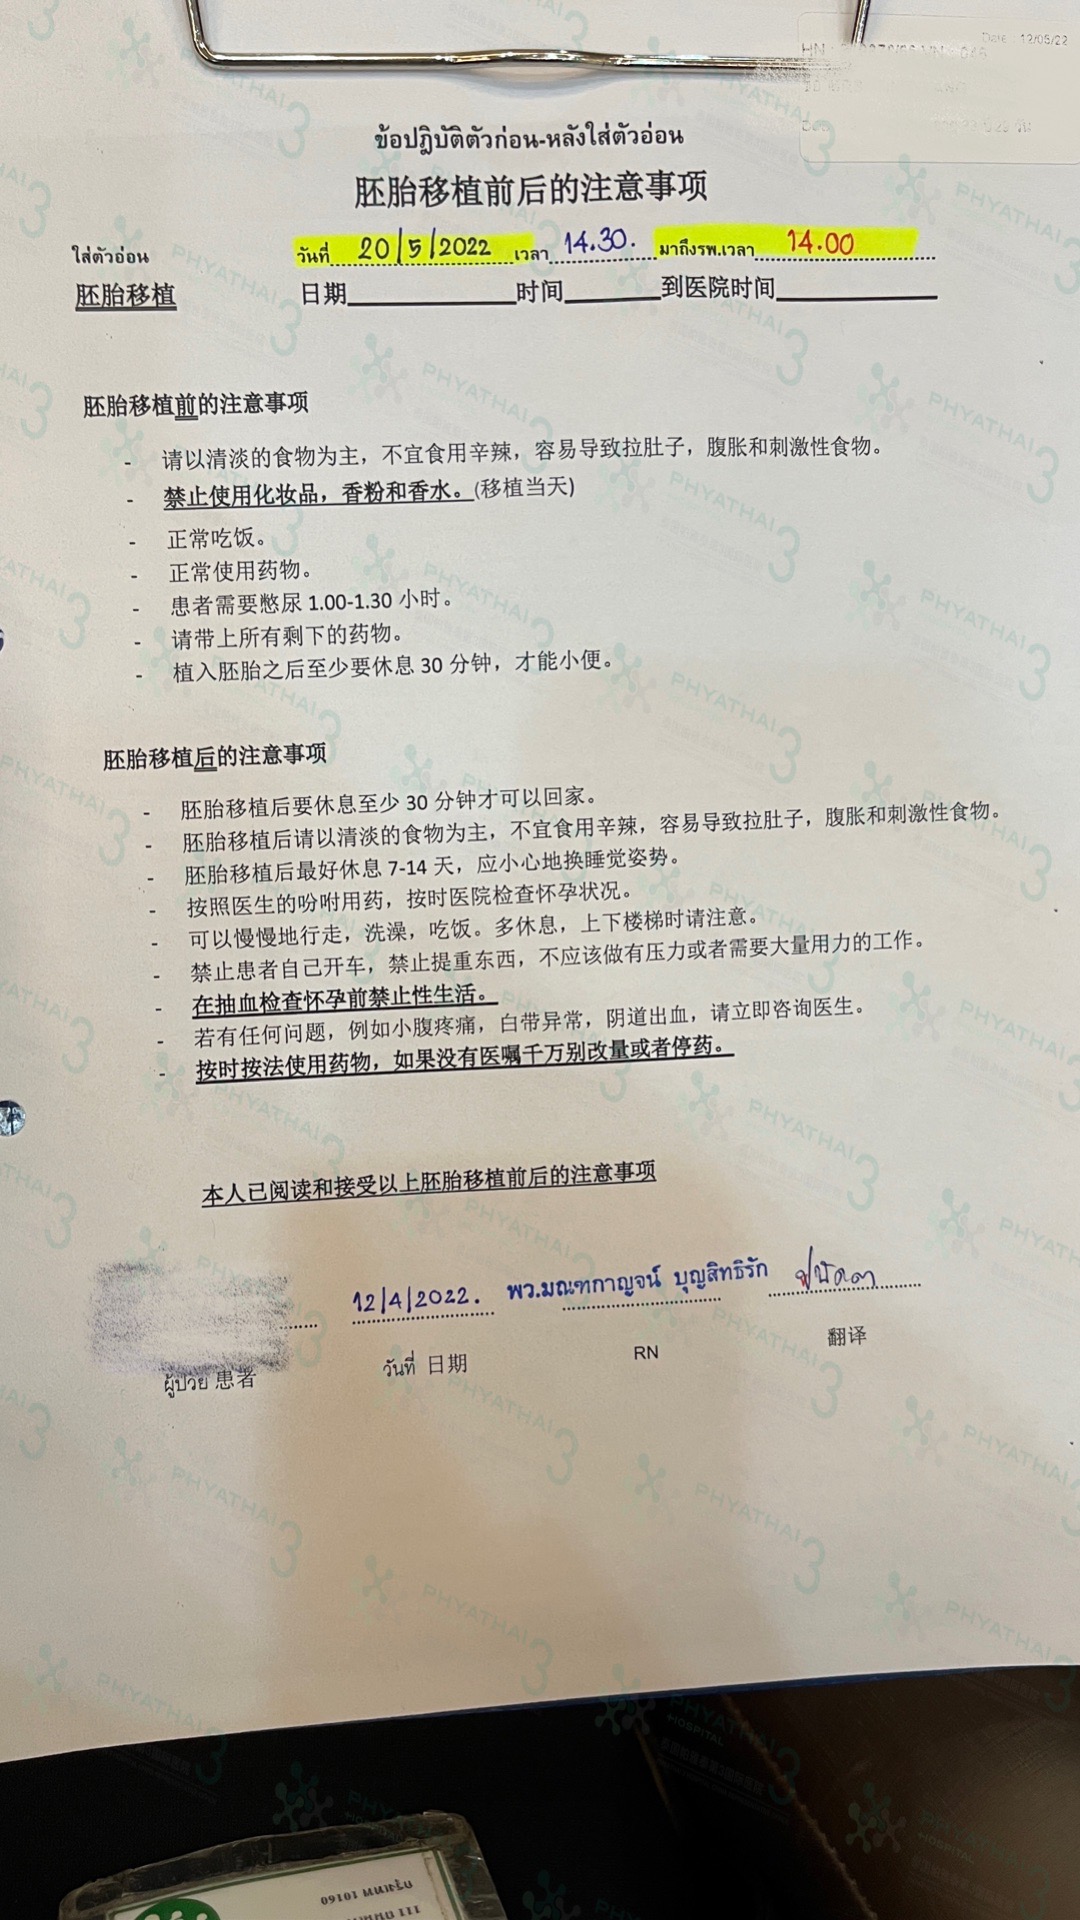 Date 12/05/22
HN
ข้อปฏิบัติตัวก่อน-หลังใส่ตัวอ่อน
胚胎移植前后的注意事项
ใส่ตัวอ่อน วันที่ 20/5/2022 เวลา 14.30. มาถึงรพ.เวลา 14.00
胚胎移植 日期 时间 到医院时间
胚胎移植前的注意事项
- 请以清淡的食物为主，不宜食用辛辣，容易导致拉肚子，腹胀和刺激性食物。
- 禁止使用化妆品，香粉和香水。(移植当天)
- 正常吃饭。
- 正常使用药物。
- 患者需要憋尿 1.00-1.30 小时。
- 请带上所有剩下的药物。
- 植入胚胎之后至少要休息 30 分钟，才能小便。
胚胎移植后的注意事项
- 胚胎移植后要休息至少 30 分钟才可以回家。
- 胚胎移植后请以清淡的食物为主，不宜食用辛辣，容易导致拉肚子，腹胀和刺激性食物。
- 胚胎移植后最好休息 7-14 天，应小心地换睡觉姿势。
- 按照医生的吩咐用药，按时医院检查怀孕状况。
- 可以慢慢地行走，洗澡，吃饭。多休息，上下楼梯时请注意。
- 禁止患者自己开车，禁止提重东西，不应该做有压力或者需要大量用力的工作。
- 在抽血检查怀孕前禁止性生活。
- 若有任何问题，例如小腹疼痛，白带异常，阴道出血，请立即咨询医生。
- 按时按法使用药物，如果没有医嘱千万别改量或者停药。
本人已阅读和接受以上胚胎移植前后的注意事项
12/4/2022. พว.มณฑกาญจน์ บุญสิทธิรัก
ผู้ป่วย 患者 วันที่ 日期 RN 翻译
PHYATHAI 3
HOSPITAL
กรุงเทพ 10160